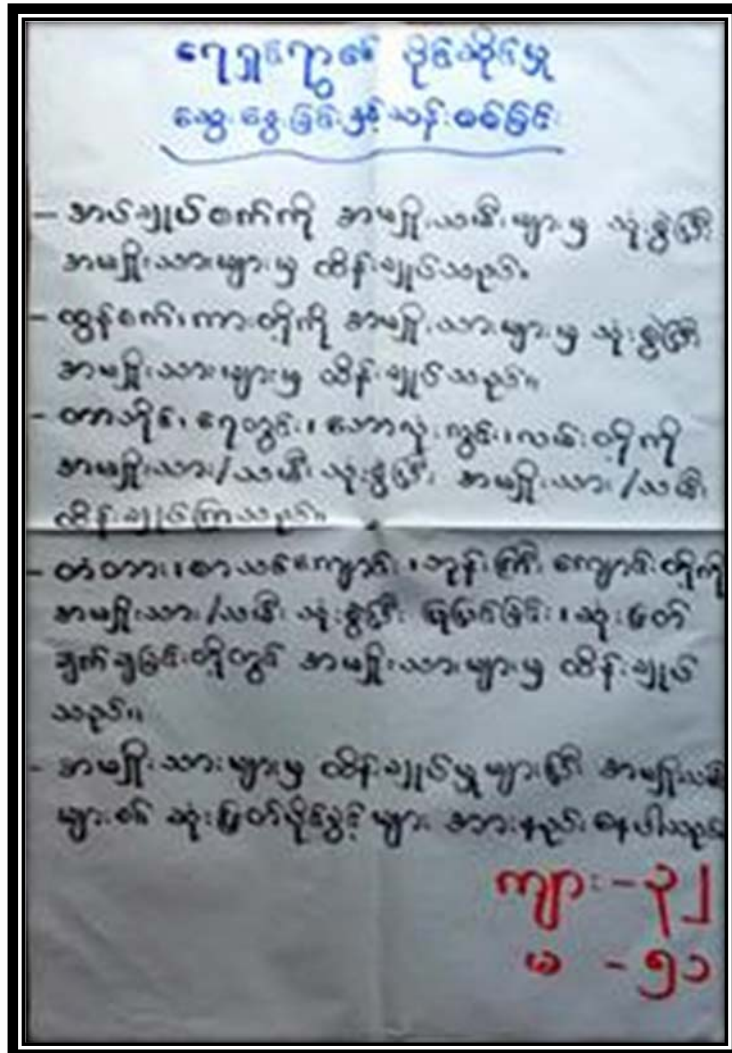 ရေရှင်ရွာ၏ ပိုင်ဆိုင်မှု
ဆွေးနွေးခြင်းနှင့်သန်းစစ်ခြင်း
- အပ်ချုပ်စက်ကို အမျိုးသမီးများမှ သုံးစွဲပြီး
အမျိုးသားများမှ ထိန်းချုပ်သည်။
- ထွန်စက်၊ကားတို့ကို အမျိုးသားများမှ သုံးစွဲပြီး
အမျိုးသားများမှ ထိန်းချုပ်သည်။
- တာသိုင်၊ ရေတွင်း၊ ဘောလုံးကွင်း၊လမ်းတို့ကို
အမျိုးသား/သမီး သုံးစွဲပြီး အမျိုးသား/သမီး
ထိန်းချုပ်ကြသည်။
- တံတား၊ စာသင်ကျောင်း၊ ဘုန်းကြီးကျောင်းတို့ကို
အမျိုးသား/သမီး သုံးစွဲပြီး ပြုပြင်ခြင်း၊ဆုံးဖြတ်
ချက်ချခြင်းတို့တွင် အမျိုးသားများမှ ထိန်းချုပ်
သည်။
- အမျိုးသားများမှ ထိန်းချုပ်မှုများပြီး အမျိုးသမီး
များ၏ ဆုံးဖြတ်ပိုင်ခွင့်များ အားနည်းနေပါသည်။
ကျား - ၃၂
မ - ၅၁